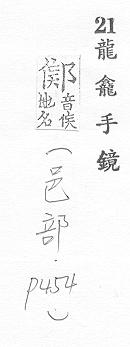 21 龍龕手鏡
鄇
音侯
地名
(邑部·p454)